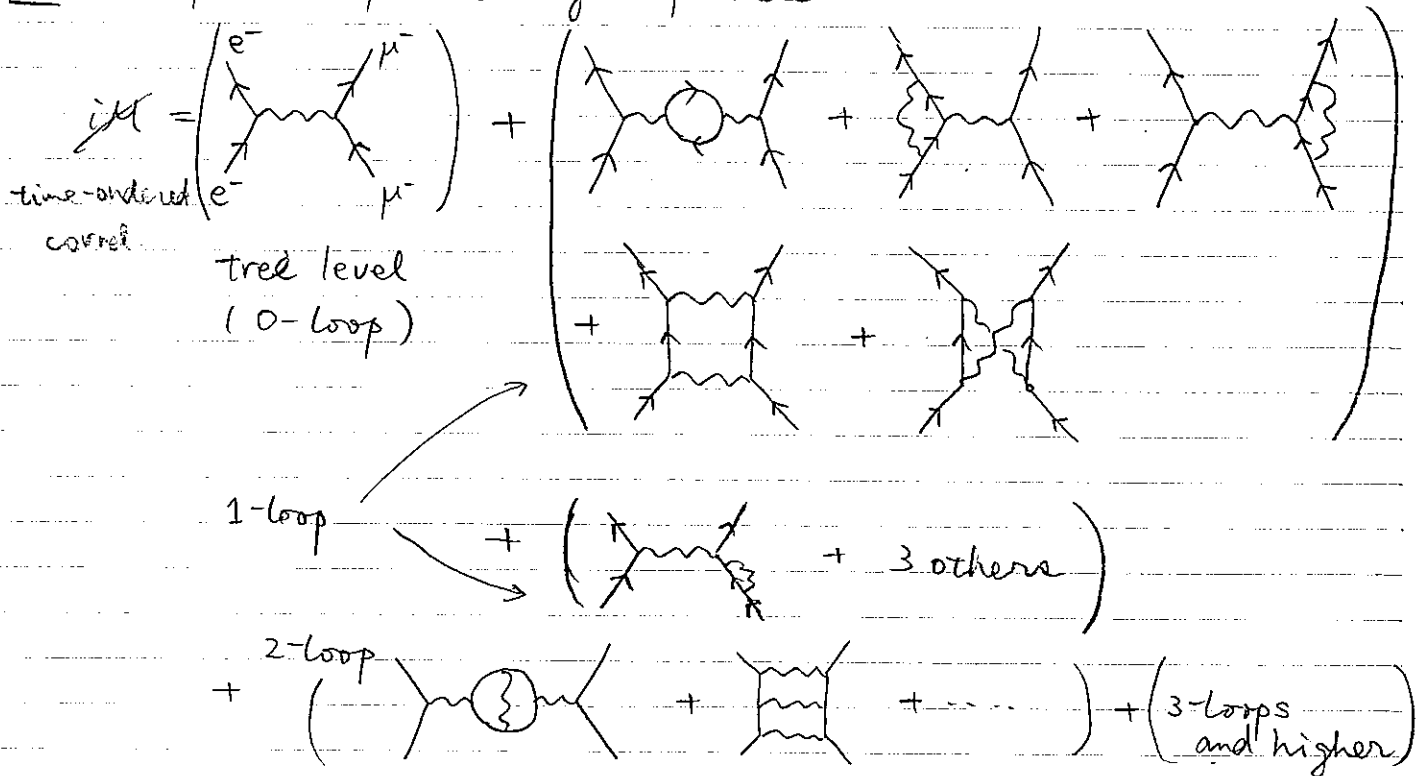 e⁻ μ⁻
iM = + + +
time-ordered e⁻ μ⁻
correl.
tree level
(0-loop) + +
1-loop + ( + 3 others )
2-loop
+ ( + + ..... ) + (3-loops
and higher)